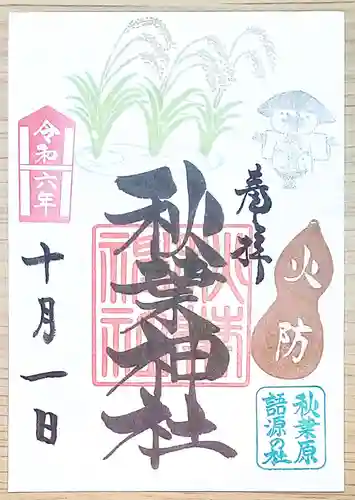 奉拝
火防
秋葉原
語源の社
秋葉神社
令和
六年
十月一日